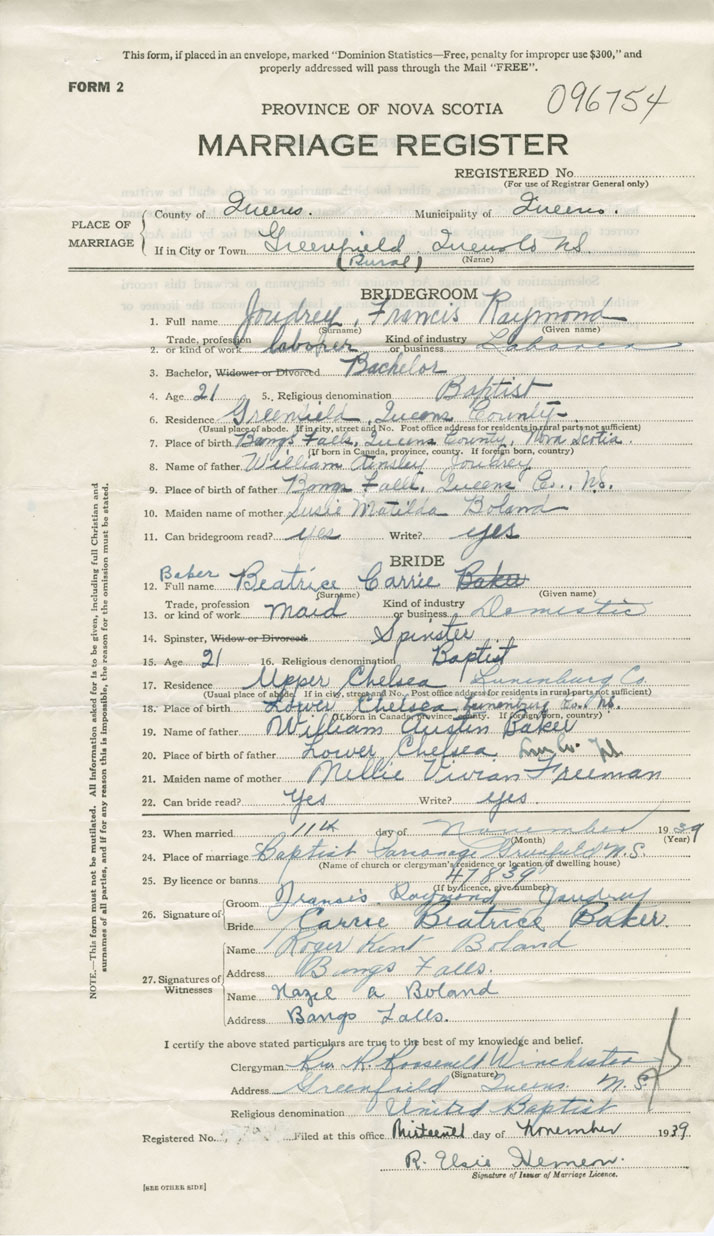 This form, if placed in an envelope, marked "Dominion Statistics—Free, penalty for improper use $300," and
properly addressed will pass through the Mail "FREE".
FORM 2
096754
PROVINCE OF NOVA SCOTIA
MARRIAGE REGISTER
REGISTERED No.
(For use of Registrar General only)
PLACE OF MARRIAGE
County of Queens. Municipality of Queens.
If in City or Town Greenfield, Queens Co NS.
(Rural) (Name)
BRIDEGROOM
1. Full name Joudrey, Francis Raymond
(Surname) (Given name)
2. Trade, profession or kind of work laborer Kind of industry or business
3. Bachelor, Widower or Divorced Bachelor
4. Age 21 5. Religious denomination Baptist
6. Residence Greenfield, Queens County
(Usual place of abode. If in city, street and No. Post office address for residents in rural parts not sufficient)
7. Place of birth Bangs Falls, Queens County, Nova Scotia.
(If born in Canada, province, county. If foreign born, country)
8. Name of father William Ainsley Joudrey
9. Place of birth of father Bangs Falls, Queens Co., N.S.
10. Maiden name of mother Susie Matilda Boland
11. Can bridegroom read? yes Write? yes
BRIDE
12. Full name Baker Beatrice Carrie Baker
(Surname) (Given name)
13. Trade, profession or kind of work Maid Kind of industry or business Domestic
14. Spinster, Widow or Divorced Spinster
15. Age 21 16. Religious denomination Baptist
17. Residence Upper Chelsea Lunenburg Co.
(Usual place of abode. If in city, street and No. Post office address for residents in rural parts not sufficient)
18. Place of birth Lower Chelsea Lunenburg Co. N.S.
(If born in Canada, province, county. If foreign born, country)
19. Name of father William Austin Baker
20. Place of birth of father Lower Chelsea Lun Co. NS
21. Maiden name of mother Millie Vivian Freeman
22. Can bride read? Yes Write? yes.
23. When married 11th day of November 1939
(Month) (Year)
24. Place of marriage Baptist Parsonage Greenfield N.S.
(Name of church or clergyman's residence or location of dwelling house)
25. By licence or banns 47839
(If by licence, give number)
26. Signature of
Groom Francis Raymond Joudrey
Bride Carrie Beatrice Baker.
27. Signatures of Witnesses
Name Roger Kent Boland
Address Bangs Falls.
Name Hazel A Boland
Address Bangs Falls.
I certify the above stated particulars are true to the best of my knowledge and belief.
Clergyman Rev. H. Roosevelt Winchester
(Signature)
Address Greenfield Queens N.S.
Religious denomination United Baptist
Registered No. Filed at this office thirteenth day of November 1939
R. Elsie Hemeon.
Signature of Issuer of Marriage Licence.
[SEE OTHER SIDE]
NOTE.—This form must not be mutilated. All information asked for is to be given, including full Christian and
surnames of all parties, and if for any reason this is impossible, the reason for the omission must be stated.